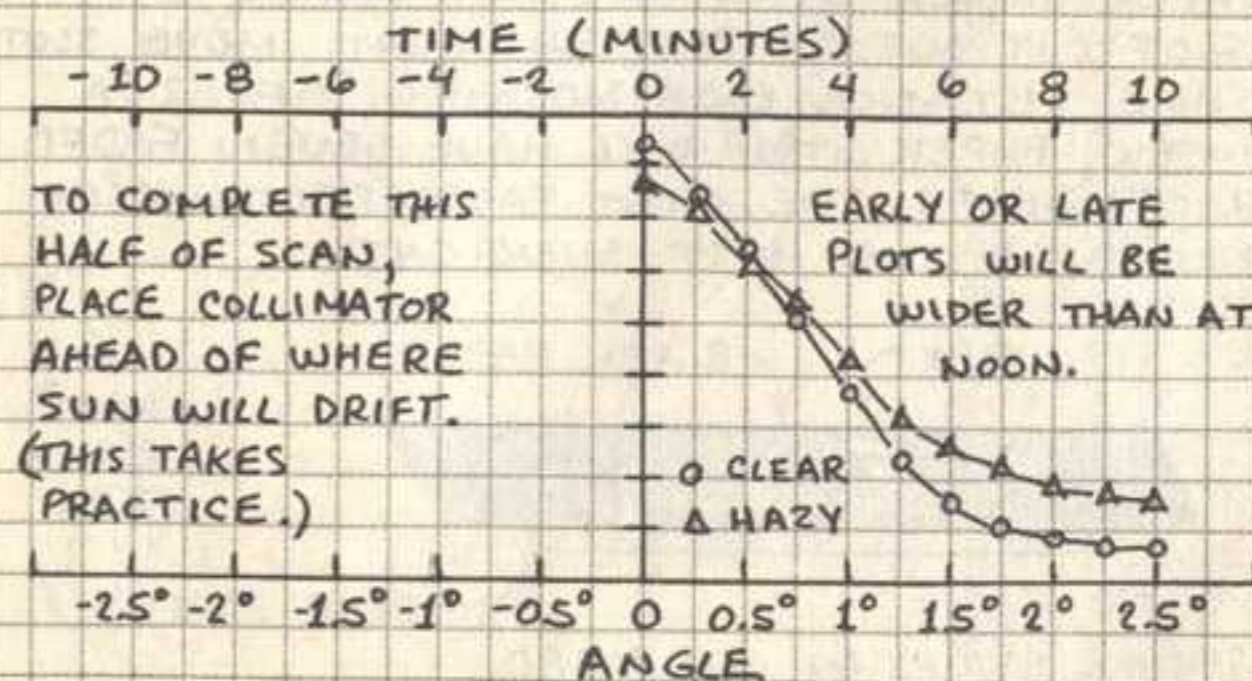 TIME (MINUTES)
-10 -8 -6 -4 -2 0 2 4 6 8 10
TO COMPLETE THIS
HALF OF SCAN,
PLACE COLLIMATOR
AHEAD OF WHERE
SUN WILL DRIFT.
(THIS TAKES
PRACTICE.)
EARLY OR LATE
PLOTS WILL BE
WIDER THAN AT
NOON.
o CLEAR
△ HAZY
-2.5° -2° -1.5° -1° -0.5° 0 0.5° 1° 1.5° 2° 2.5°
ANGLE